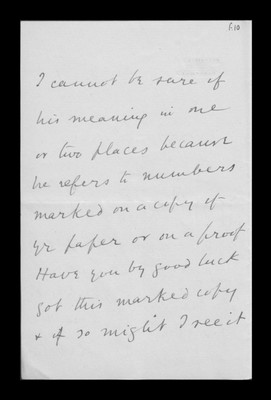 f.10
I cannot be sure of
his meaning in one
or two places because
he refers to numbers
marked on a copy of
yr paper or on a proof
Have you by good luck
got this marked copy
& if so might I see it